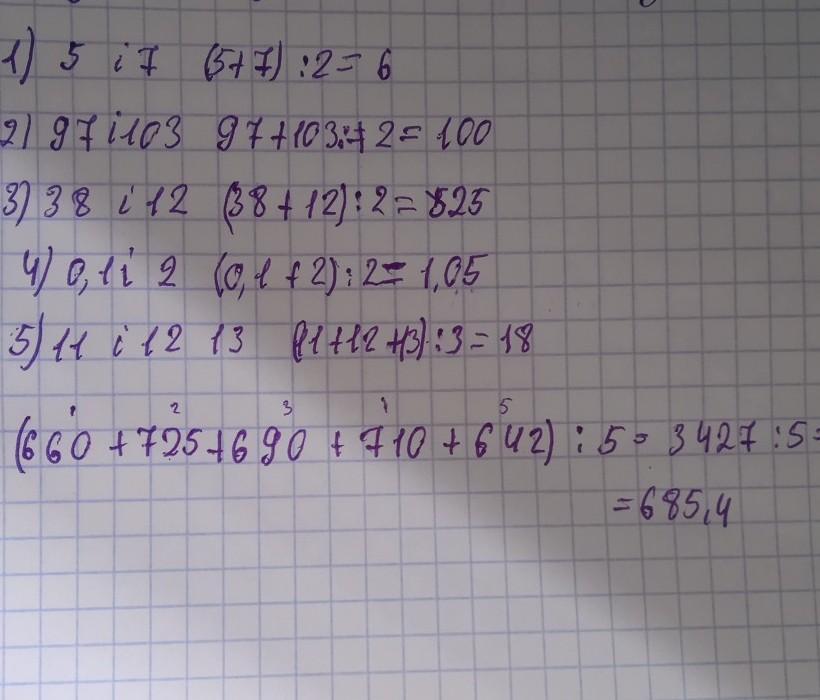 1) 5 і 7 (5+7) :2= 6
2) 97 і 103 97+103:2= 100
3) 38 і 12 (38+12):2= 25
4) 0,1 і 2 (0,1+2):2= 1,05
5) 11 і 12 13 (11+12+13):3= 18
1 2 3 1 5
(660 +725+690 +710 +642) : 5= 3427 :5=
=685,4